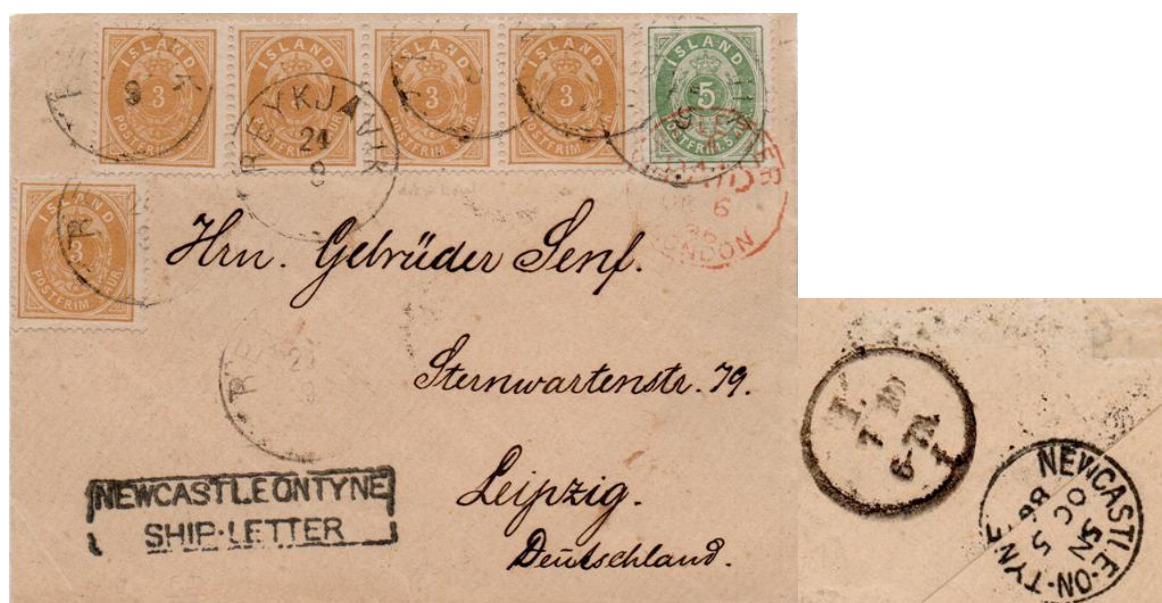 ISLAND 3 POSTFRIM. 5 AUR.
ISLAND 3 POSTFRIM.
ISLAND 3 POSTFRIM.
ISLAND 3 POSTFRIM.
ISLAND 5 POSTFRIM.
REYKJAVIK
24
9
PAID
6
86
LONDON
ISLAND 3 POSTFRIM. AUR.
Hrn. Gebrüder Senf.
Sternwartenstr. 79.
Leipzig.
Deutschland.
NEWCASTLE ON TYNE
SHIP·LETTER
7
NEWCASTLE-ON-TYNE
SN
OC 5
86